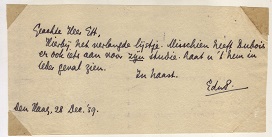 Geachte Heer Ett,
Hierbij het verlangde lijstje. Misschien heeft Dubois
er ook iets aan voor zijn studie. Laat u 't hem in
ieder geval zien.
In haast.
Den Haag, 28 Dec. '59.